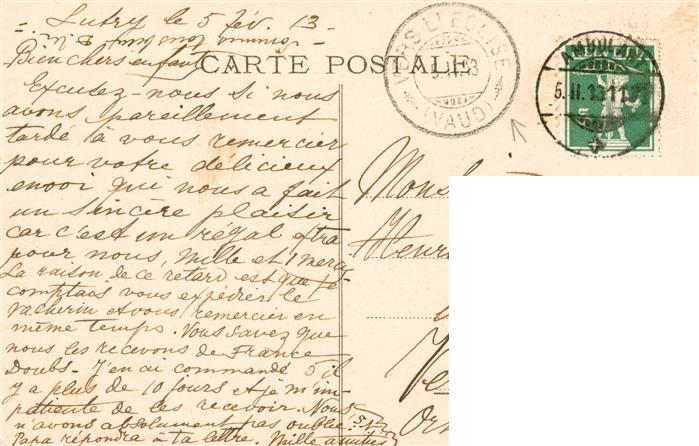 Lutry le 5 fév. 13 -
Bien chers enfants
CARTE POSTALE
Excusez-nous si nous
avons pareillement
tardé à vous remercier
pour votre délicieux
envoi qui nous a fait
un sincère plaisir
car c'est un régal extra
pour nous, Mille et 1 merci
La raison de ce retard est que je
comptais vous expédier le
vacherin et vous remercier en
même temps. Vous savez que
nous les recevons de France
Doubs - J'en ai commandé 5 il
y a plus de 10 jours et je m'im-
patiente de les recevoir. Nous
n'avons absolument pas oublié.
Papa répondra à ta lettre. Mille amitiés
S.V.
VERS L'EGLISE
5.II.13
(VAUD)
AMBULANT
5.II.13
HELVETIA
5
Monsi
Henr
Ve
Orm